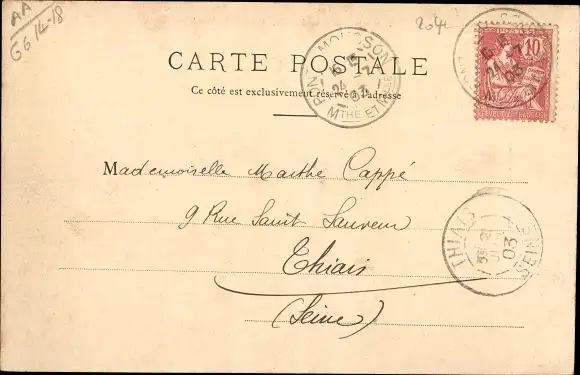 AA
GG 14-18
20f
CARTE POSTALE
Ce côté est exclusivement réservé à l'adresse
PONT-A-MOUSSON
24
03
MTHE ET MLLE
10
RÉPUBLIQUE FRANÇAISE
24
03
Mademoiselle Marthe Cappé
9 Rue Saint Sauveur
Thiais
(Seine)
THIAIS
03
SEINE